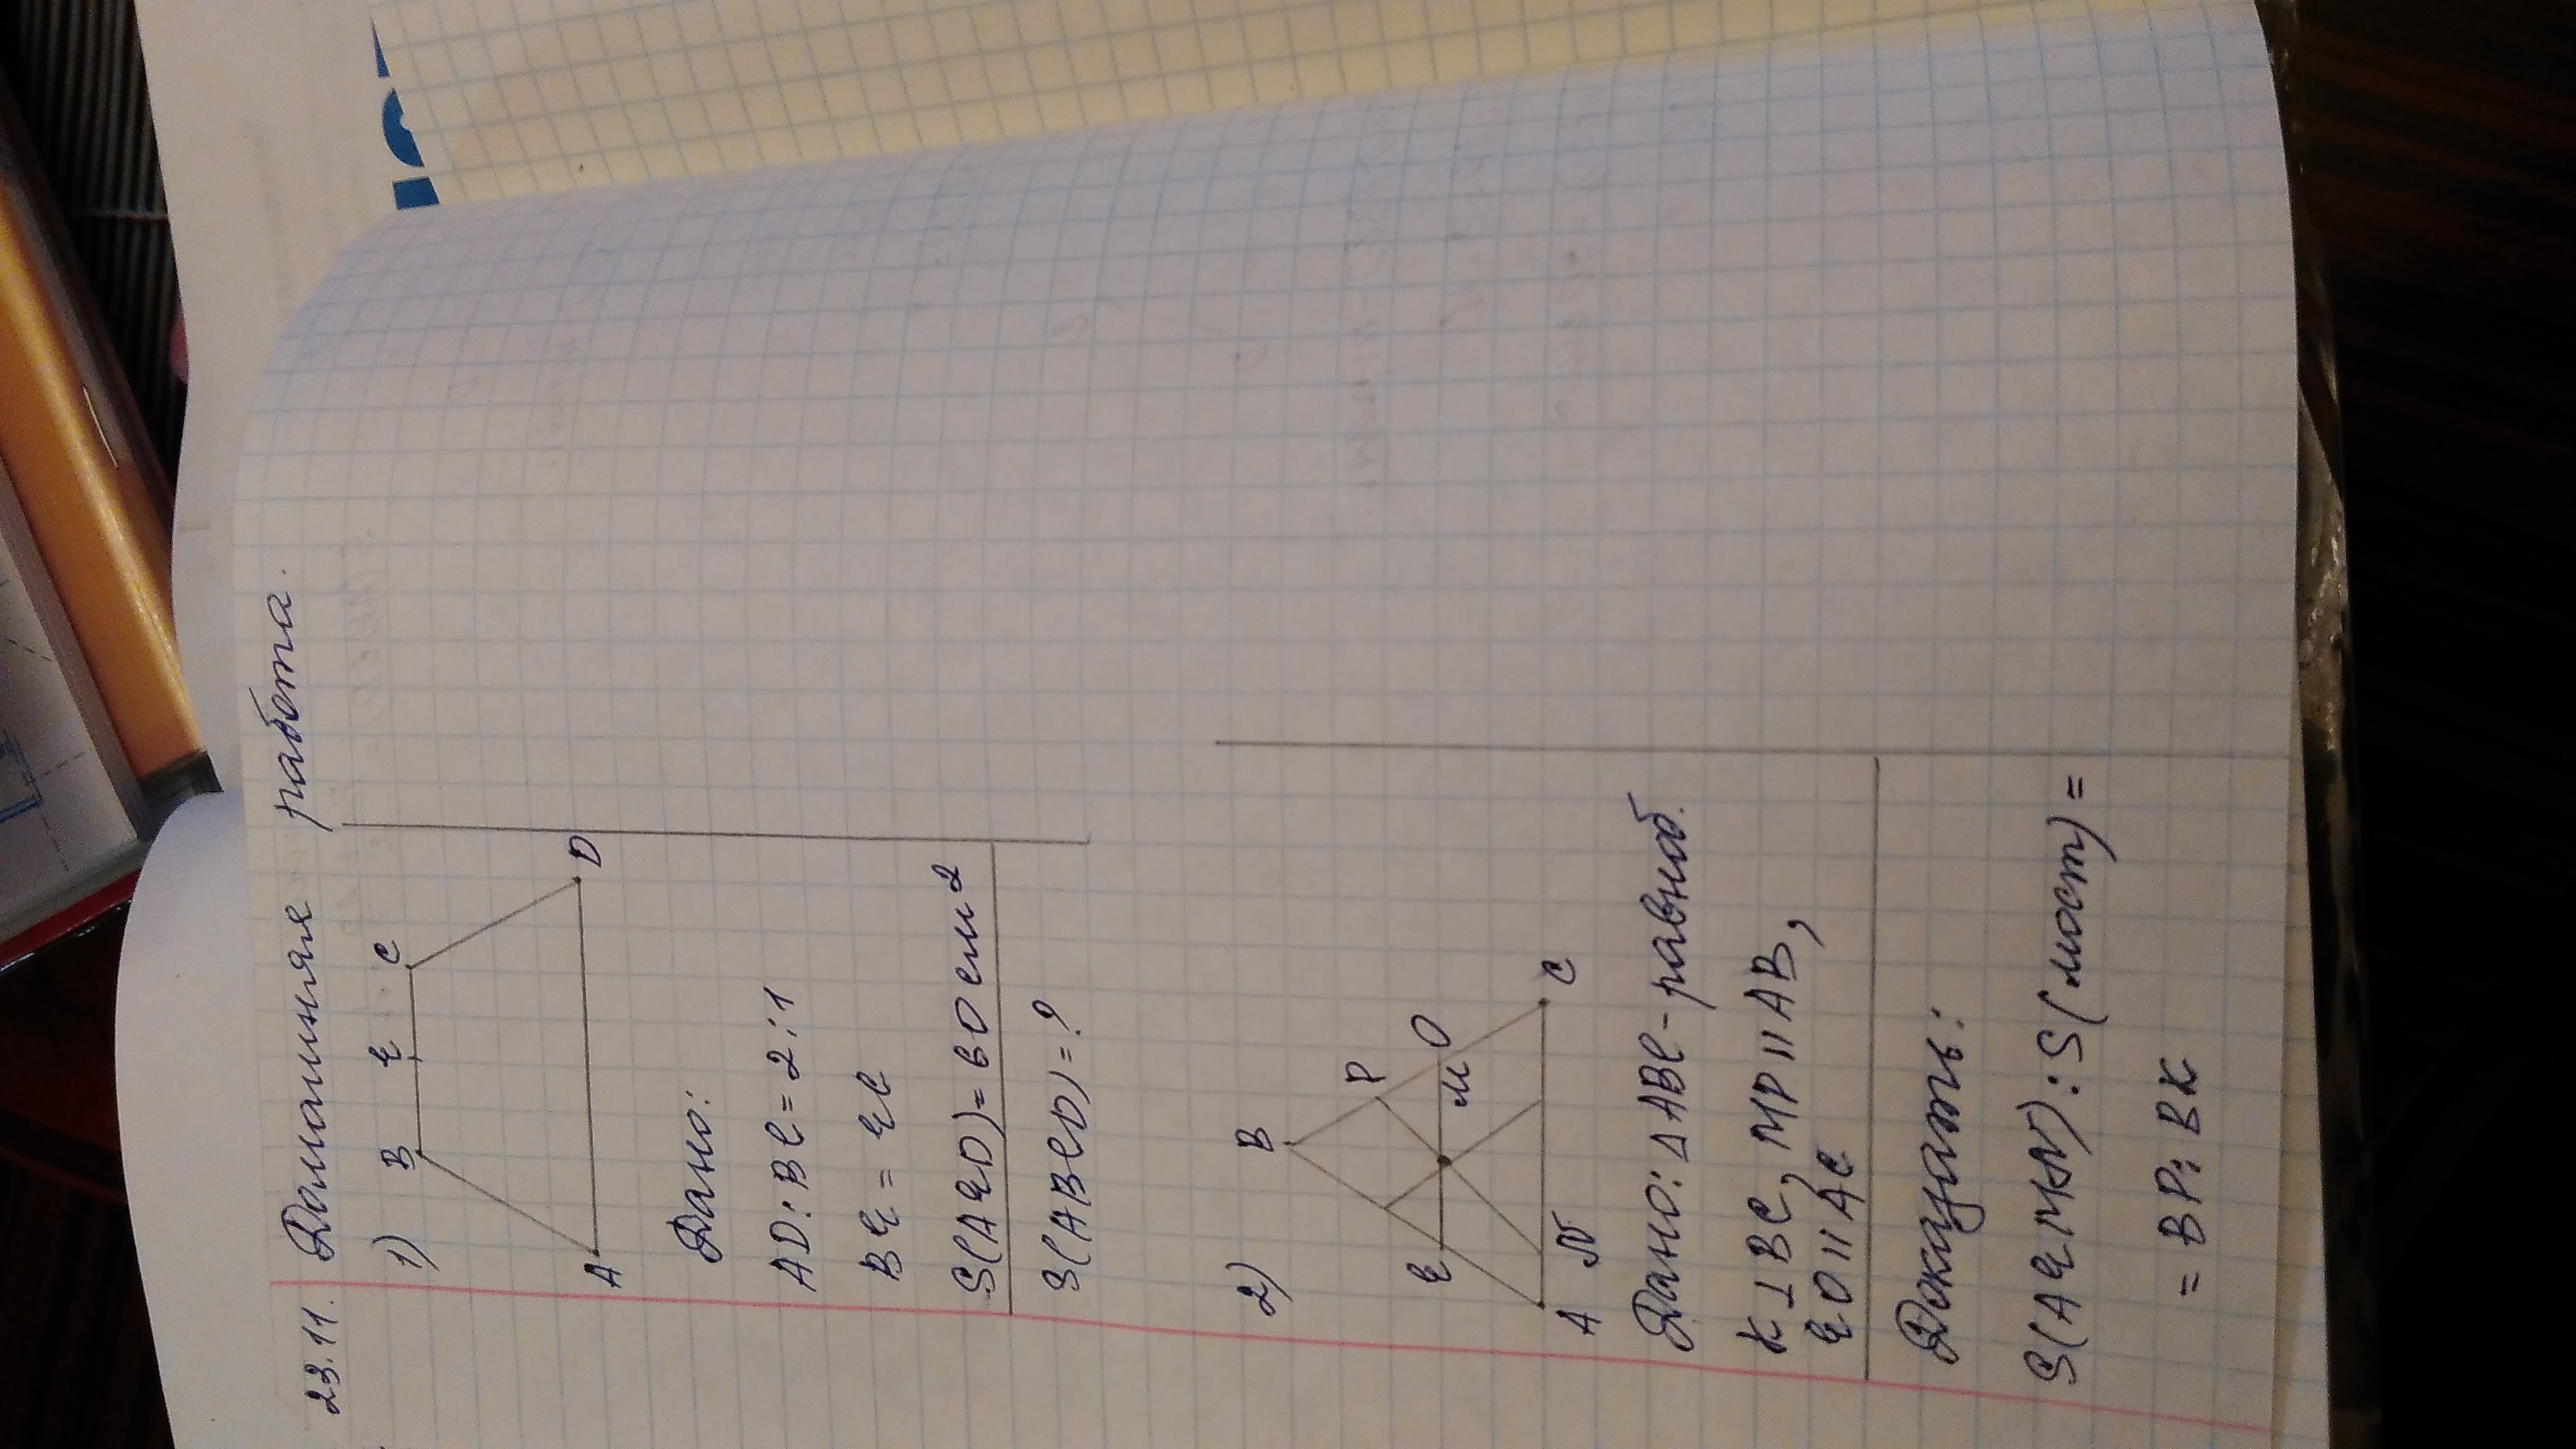 23.11. Домашняя работа.
1)
B E C
A D
Дано:
AD:BC=2:1
BE = EC
S(AED)=60см2
S(ABCD)=?
2)
B
P
E M O
A N C
Дано: △ABC-равноб.
K⊥BC, MP||AB,
EO||AC
Доказать:
=BP:BK